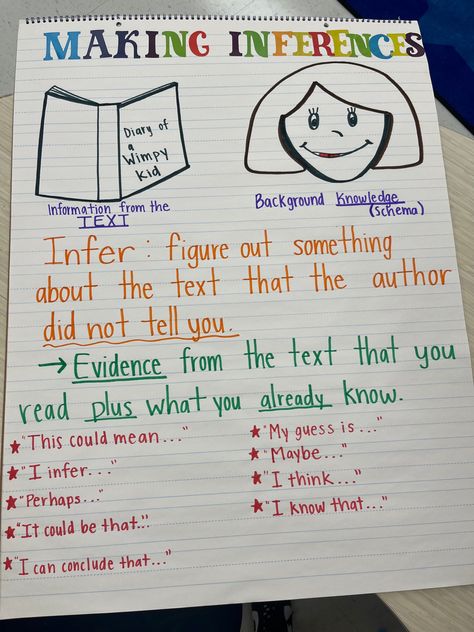 MAKING INFERENCES
Diary of
a
Wimpy
Kid
Information from the
TEXT
Background Knowledge
(Schema)
Infer: figure out something
about the text that the author
did not tell you.
→ Evidence from the text that you
read plus what you already know.
★"This could mean..."
★"I infer..."
★"Perhaps..."
★"It could be that..."
★"I can conclude that..."
★"My guess is..."
★"Maybe..."
★"I think..."
★"I know that..."